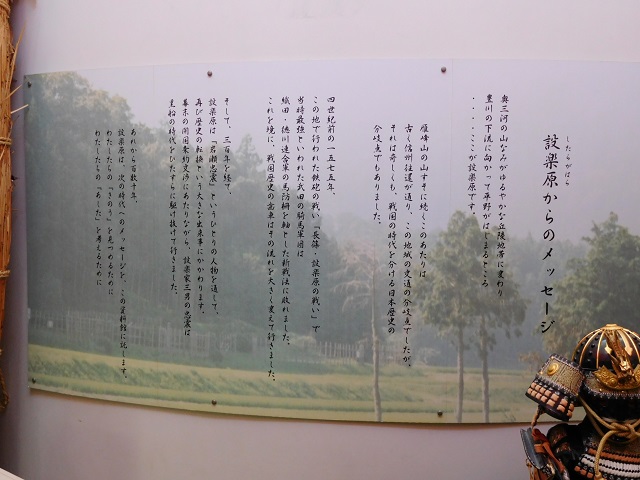 したらがはら
設楽原からのメッセージ
奥三河の山なみがゆるやかな丘陵地帯に変わり
豊川の下流に向かって平野がはじまるところ
・・・・ここが設楽原です。
雁峰山の山すそに続くこのあたりは
古く信州往還が通り、この地域の交通の分岐点でしたが、
それは奇しくも、戦国の時代を分ける日本歴史の
分岐点でもありました。
四世紀前の一五七五年、
この地で行われた鉄砲の戦い「長篠・設楽原の戦い」で
当時最強といわれた武田の騎馬軍団は
織田・徳川連合軍の馬防柵を軸とした新戦法に敗れました。
これを境に、戦国歴史の歯車はその流れを大きく変えて行きました。
そして、三百年を経て、
設楽原は「岩瀬忠震」というひとりの人物を通して、
再び歴史の転換という大きな出来事にかかわります。
幕末の開国条約交渉にあたりながら、設楽家三男の忠震は
黒船の時代をひたすらに駆け抜けて行きました。
あれから百数十年、
設楽原は、次の時代へのメッセージを、この資料館に託します。
わたしたちの「きのう」を見つめるために
わたしたちの「あした」を考えるために